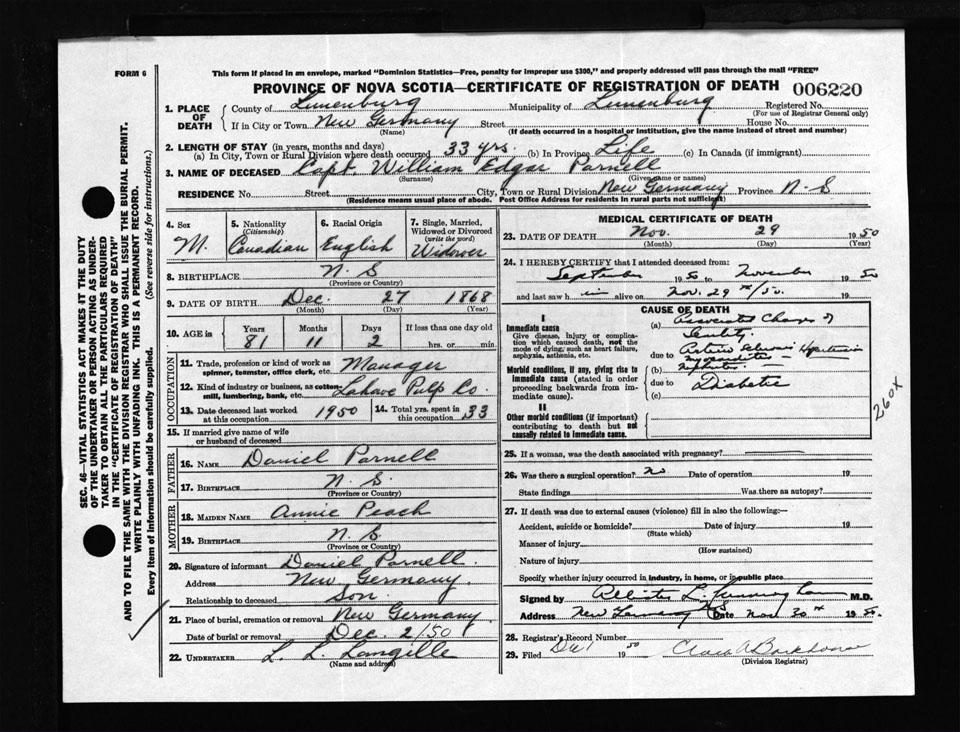 FORM 6
This form if placed in an envelope, marked "Dominion Statistics—Free, penalty for improper use $300," and properly addressed will pass through the mail "FREE"
PROVINCE OF NOVA SCOTIA—CERTIFICATE OF REGISTRATION OF DEATH 006220
1. PLACE OF DEATH
County of Lunenburg Municipality of Lunenburg Registered No.
(For use of Registrar General only)
If in City or Town New Germany Street House No.
(Name) (If death occurred in a hospital or institution, give the name instead of street and number)
2. LENGTH OF STAY (in years, months and days)
(a) In City, Town or Rural Division where death occurred 33 yrs. (b) In Province Life (c) In Canada (if immigrant)
3. NAME OF DECEASED Capt. William Edgar Parnell
(Surname) (Given name or names)
RESIDENCE No. Street City, Town or Rural Division New Germany Province N-S
(Residence means usual place of abode. Post Office Address for residents in rural parts not sufficient)
4. Sex M.
5. Nationality (Citizenship) Canadian
6. Racial Origin English
7. Single, Married, Widowed or Divorced (write the word) Widower
8. BIRTHPLACE N. S
(Province or Country)
9. DATE OF BIRTH Dec. 27 1868
(Month) (Day) (Year)
10. AGE in Years Months Days If less than one day old
81 11 2 hrs. or min.
OCCUPATION
11. Trade, profession or kind of work as spinner, teamster, office clerk, etc. Manager
12. Kind of industry or business, as cotton-mill, lumbering, bank, etc. Lahave Pulp Co
13. Date deceased last worked at this occupation 1950
14. Total yrs. spent in this occupation 33
15. If married give name of wife or husband of deceased
FATHER
16. NAME Daniel Parnell
17. BIRTHPLACE N. S.
(Province or Country)
MOTHER
18. MAIDEN NAME Annie Peach
19. BIRTHPLACE N. S
(Province or Country)
20. Signature of informant Daniel Parnell.
Address New Germany.
Relationship to deceased Son.
21. Place of burial, cremation or removal New Germany.
Date of burial or removal Dec. 2/50
22. UNDERTAKER L. L. Langille
(Name and address)
MEDICAL CERTIFICATE OF DEATH
23. DATE OF DEATH Nov. 29 1950
(Month) (Day) (Year)
24. I HEREBY CERTIFY that I attended deceased from:
September 1950 to November 1950
and last saw him alive on Nov. 29th/50. 19
CAUSE OF DEATH
I
Immediate cause
Give disease, injury or complication which caused death, not the mode of dying, such as heart failure, asphyxia, asthenia, etc.
(a) Associated Changes of
Senility
due to Arterio Sclerosis - Hypertension
myocarditis -
Nephritis -
Morbid conditions, if any, giving rise to immediate cause (stated in order proceeding backwards from immediate cause).
(b)
due to Diabetic
(c)
II
Other morbid conditions (if important) contributing to death but not causally related to immediate cause.
260X
25. If a woman, was the death associated with pregnancy?
26. Was there a surgical operation? no Date of operation 19
State findings Was there an autopsy?
27. If death was due to external causes (violence) fill in also the following:—
Accident, suicide or homicide? Date of injury 19
(State which)
Manner of injury
(How sustained)
Nature of injury
Specify whether injury occurred in industry, in home, or in public place
Signed by M.D.
Address New Germany NS Date Nov 30th 1950.
28. Registrar's Record Number
29. Filed Dec 1 1950 Clara A Barkhouse
(Division Registrar)
SEC. 46—VITAL STATISTICS ACT MAKES IT THE DUTY
OF THE UNDERTAKER OR PERSON ACTING AS UNDER-
TAKER TO OBTAIN ALL THE PARTICULARS REQUIRED
IN THE "CERTIFICATE OF REGISTRATION OF DEATH"
AND TO FILE THE SAME WITH THE DIVISION REGISTRAR WHO SHALL ISSUE THE BURIAL PERMIT.
WRITE PLAINLY WITH UNFADING INK. THIS IS A PERMANENT RECORD.
Every item of information should be carefully supplied. (See reverse side for instructions.)